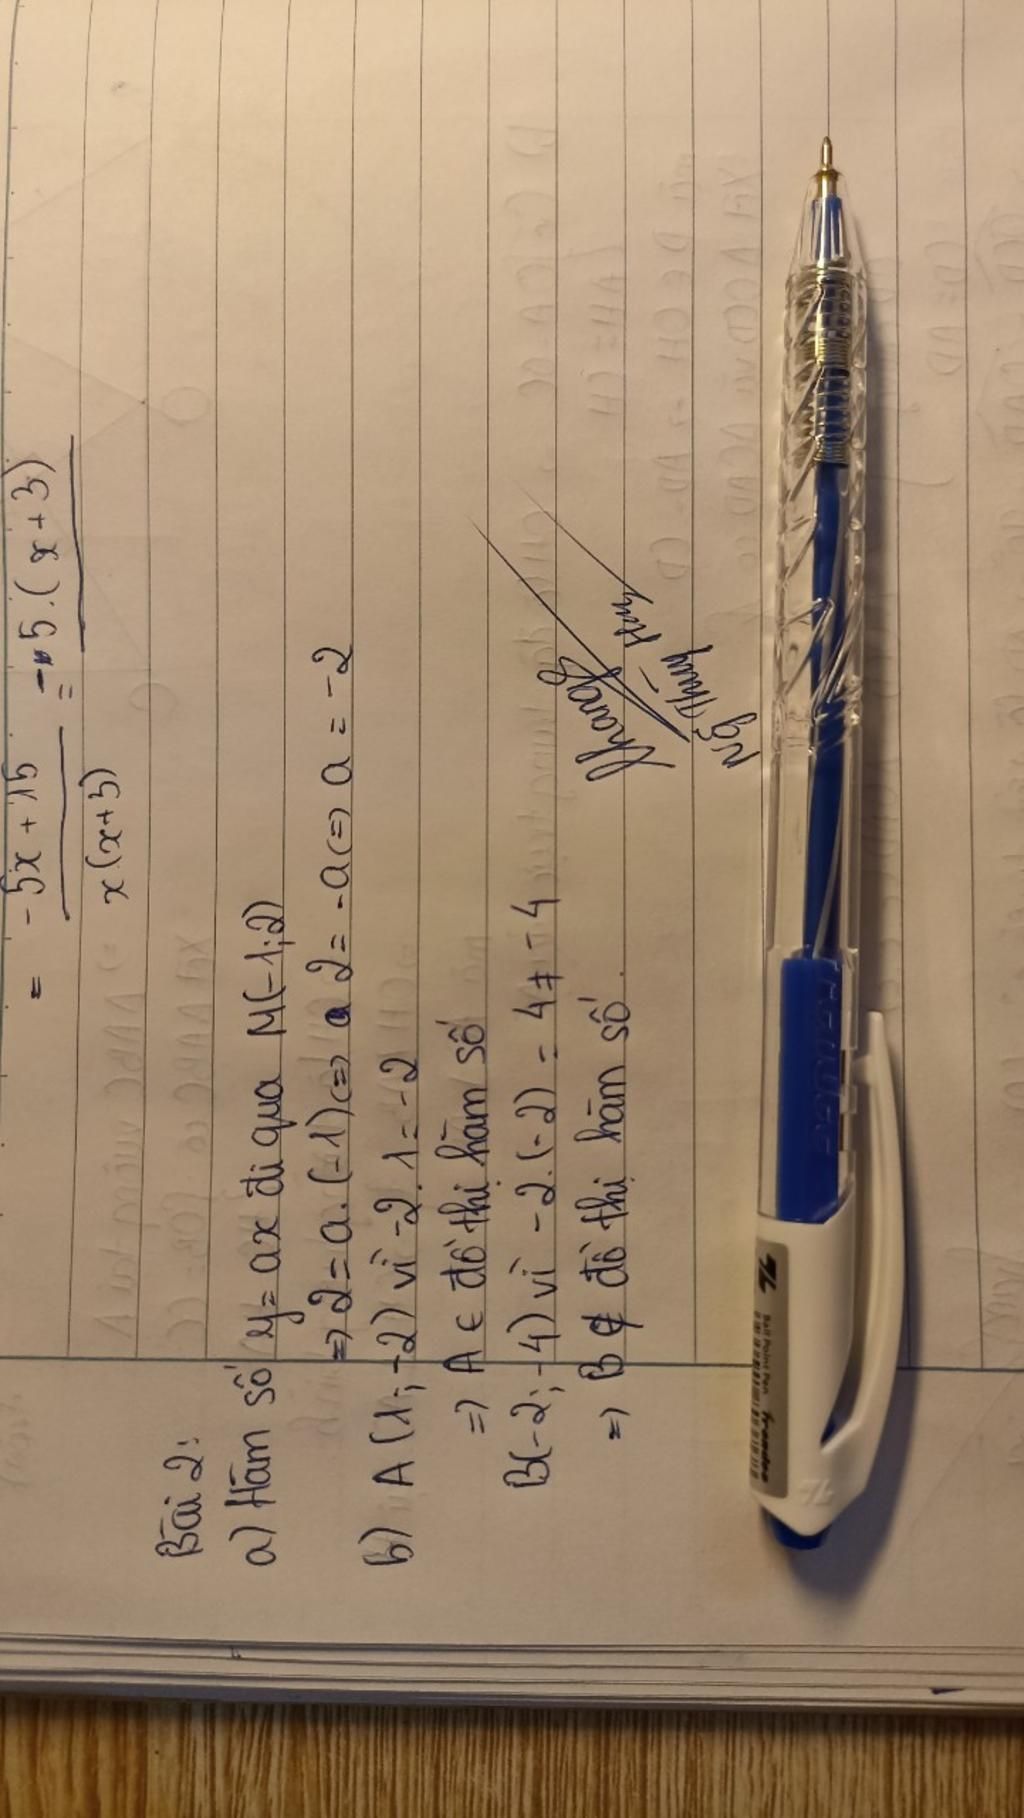 = -5x + 15 / x(x+3) = -5.(x+3)
Bài 2:
a) Hàm số y = ax đi qua M(-1;2)
=> 2 = a.(-1) <=> 2 = -a <=> a = -2
b) A(1; -2) vì -2.1 = -2
=> A ∈ đồ thị hàm số
B(-2; -4) vì -2.(-2) = 4 ≠ -4
=> B ∉ đồ thị hàm số.
Khang
Ng Thùy
TL Ball Point Pen Trendee